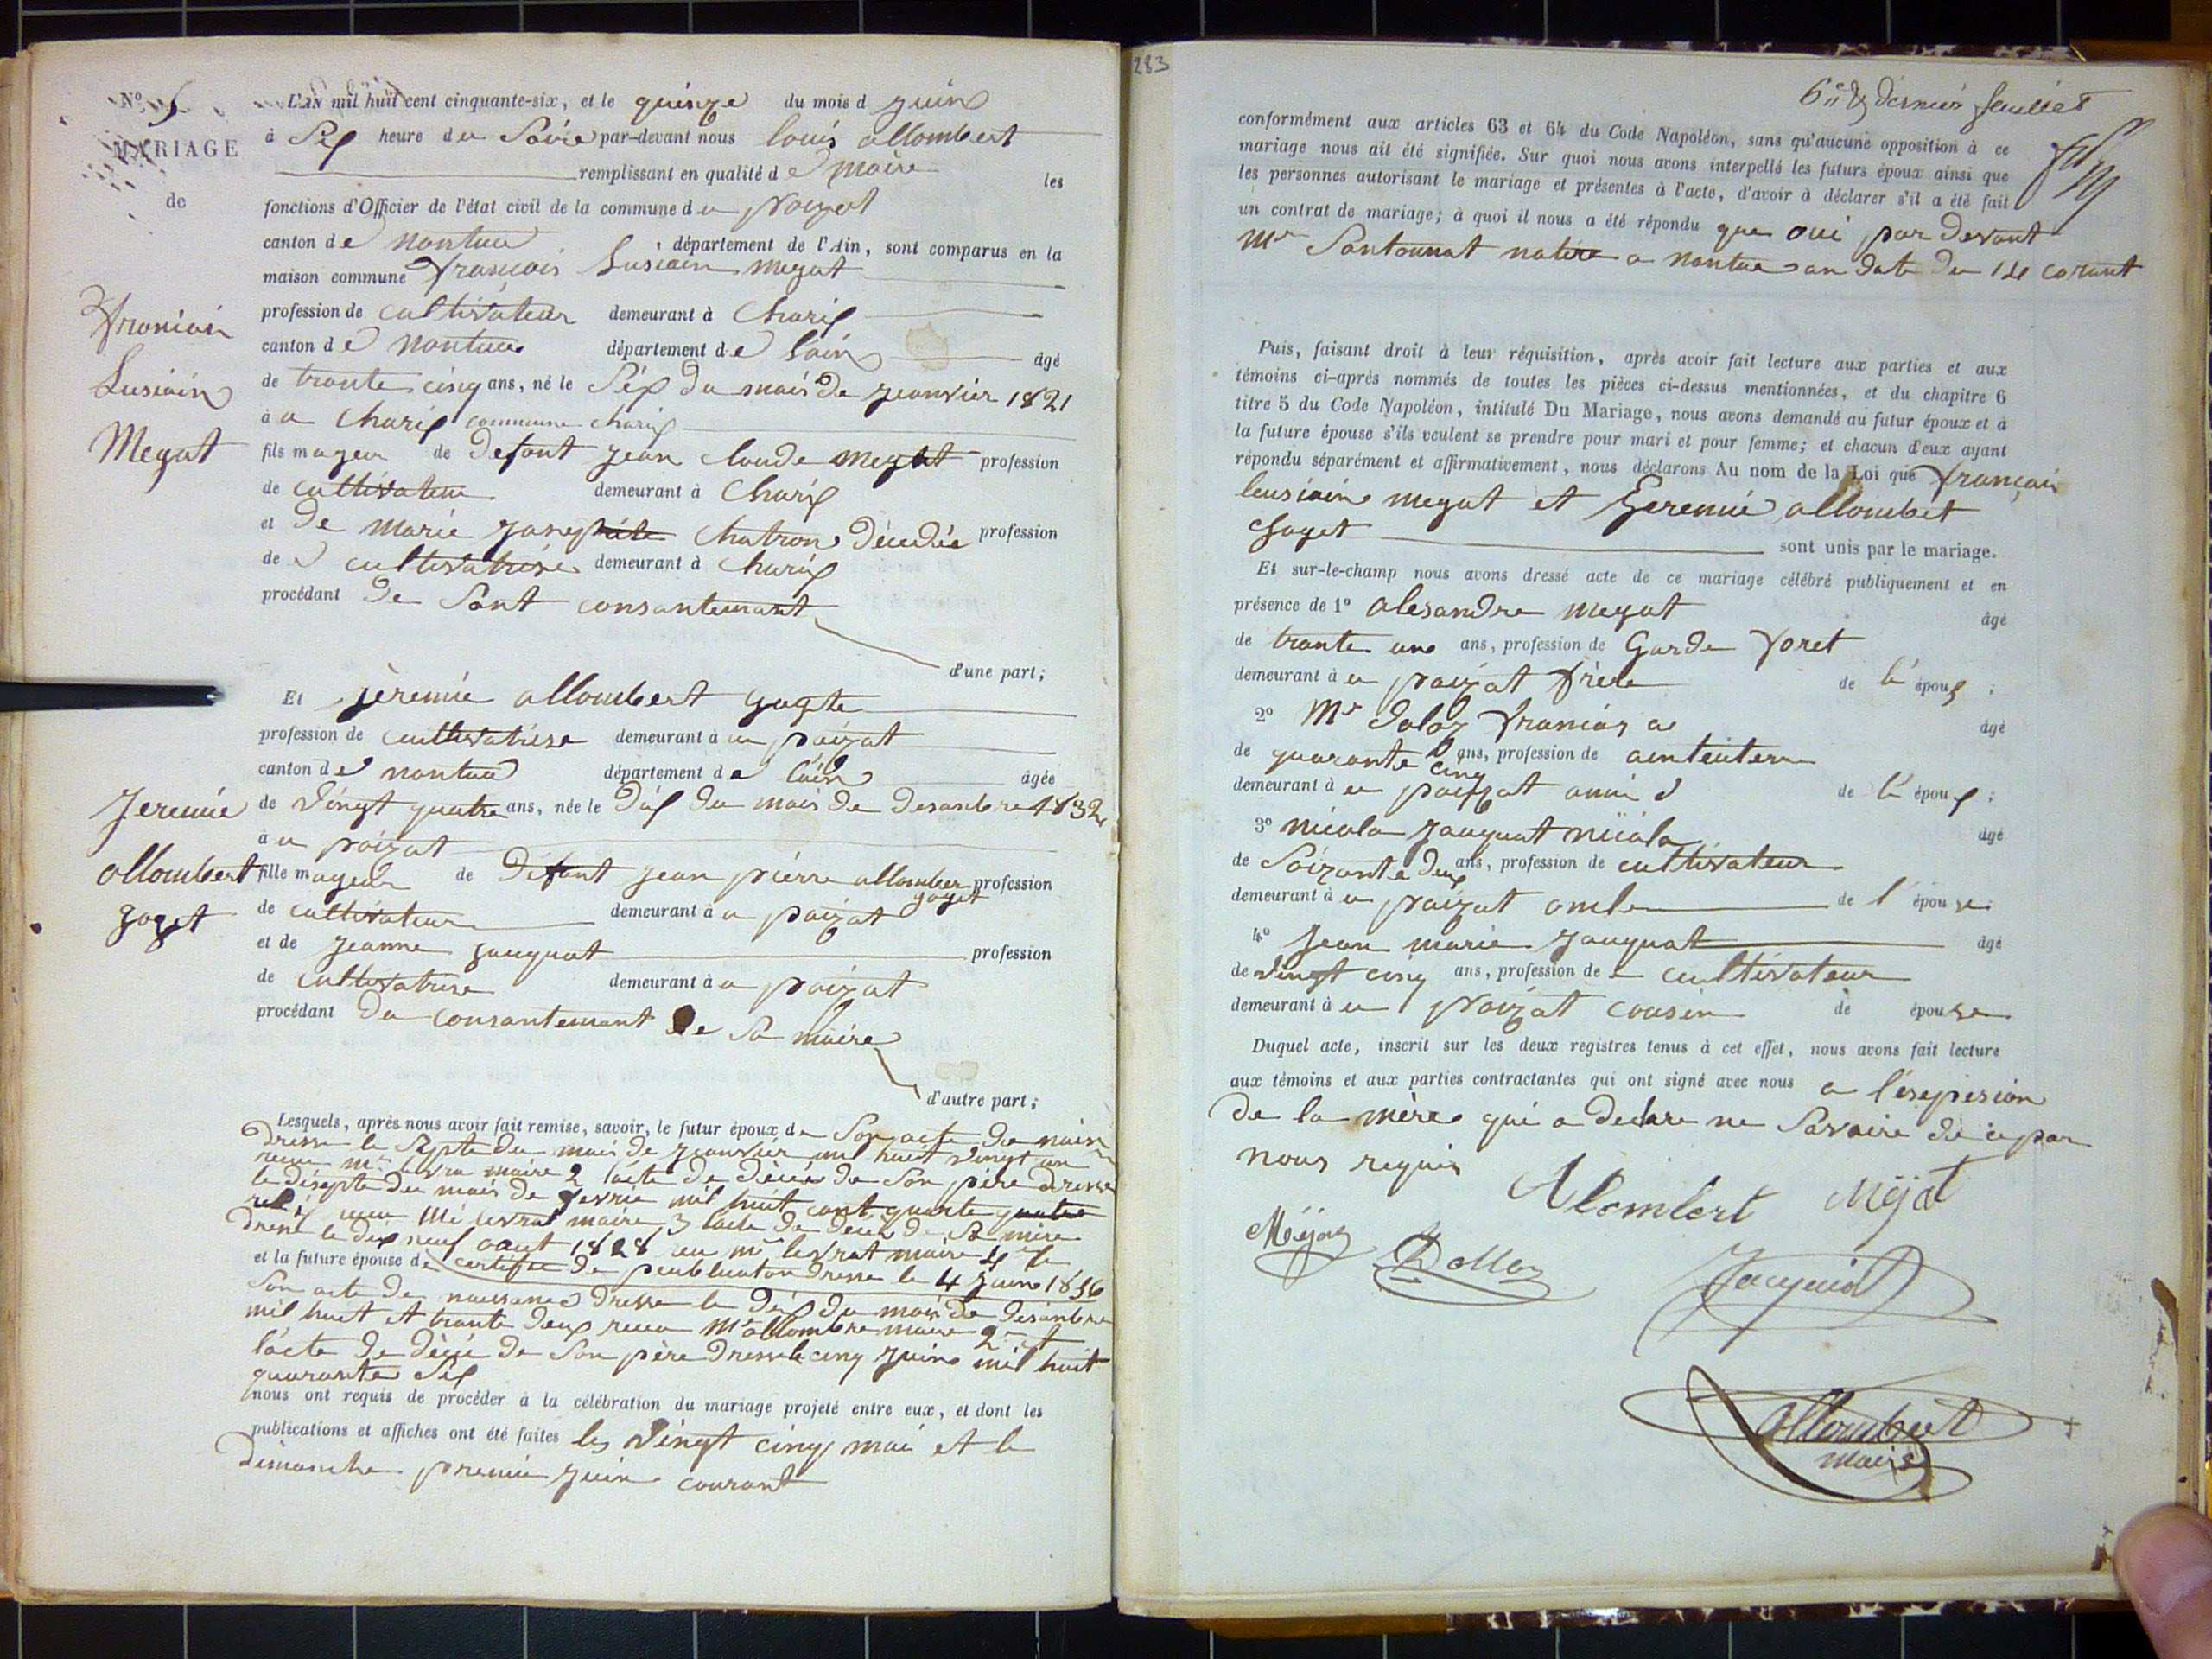 Nº 5
MARIAGE
de
François
Lusiain
Megat
Jeremie
allombert
goget
L'AN mil huit cent cinquante-six, et le quinze du mois d juin
à Six heure du Soire par-devant nous louis allombert
remplissant en qualité de maire les
fonctions d'Officier de l'état civil de la commune du poizat
canton de nantua département de l'Ain, sont comparus en la
maison commune françois Lusiain megat
profession de cultivateur demeurant à Charix
canton de Nantua département de lain âgé
de trante cinq ans, né le Six du mois de jeanvier 1821
à a Charix commune charix
fils mageur de defont jean claude megat profession
de cultivateur demeurant à Charix
et de marie Chatron décédée profession
de cultivatrise demeurant à Charix
procédant de Sont consantemant
d'une part;
Et jèremie allombert gogte
profession de cultivatrise demeurant à u poizat
canton de nantua département de lain âgée
de vingt quatre ans, née le dix du mois de desanbre 1832
à u poizat
fille mageur de defont jean pierre allomber profession
goget
de cultivateur demeurant à u poizat
et de jeanne jauquat profession
de cultivatrise demeurant à u poizat
procédant du consantemant de Sa maire
d'autre part;
Lesquels, après nous avoir fait remise, savoir, le futur époux de Son acte de nain
dresse le Septe du mois de jeanvier mil huit vingt un
maire 2 lacte de décès de Son père dresse
le diseptte du mois de fevrie mil huit cant quarte quatre
maire 3 lacte de deces de Sa mère
dresse le dix neuf aout 1828 levrat maire 4 le
et la future épouse de certifica de peublication dresse le 4 juin 1856
Son acte de naissance dresse le dix du mois de desanbre
mil huit et trante deux recu Mr allombre maire 2 et
lacte de décè de Son père dresse le cinq juin mil huit
quarante Six
nous ont requis de procéder à la célébration du mariage projeté entre eux, et dont les
publications et affiches ont été faites les vingt cinq mai et le
dimanche premie juin courant
283
6e & dernier feuillet
conformément aux articles 63 et 64 du Code Napoléon, sans qu'aucune opposition à ce
mariage nous ait été signifiée. Sur quoi nous avons interpellé les futurs époux ainsi que
les personnes autorisant le mariage et présentes à l'acte, d'avoir à déclarer s'il a été fait
un contrat de mariage; à quoi il nous a été répondu que oui par devant
Mr Santonnat notire a nantua an date du 14 corant
Puis, faisant droit à leur réquisition, après avoir fait lecture aux parties et aux
témoins ci-après nommés de toutes les pièces ci-dessus mentionnées, et du chapitre 6
titre 5 du Code Napoléon, intitulé Du Mariage, nous avons demandé au futur époux et à
la future épouse s'ils veulent se prendre pour mari et pour femme; et chacun d'eux ayant
répondu séparément et affirmativement, nous déclarons Au nom de la Loi que françois
leusiain megat et Geremie allombet
goget sont unis par le mariage.
Et sur-le-champ nous avons dressé acte de ce mariage célébré publiquement et en
présence de 1º alesandre megat âgé
de trante une ans, profession de Garde foret
demeurant à u poizat frère de lé époux ;
2º Mr daloz françois a âgé
de quarante cinq ans, profession de
demeurant à u poizat ami d de lé époux ;
3º nicola jauquat nicola âgé
de Soizante deux ans, profession de cultivateur
demeurant à u poizat oncle de l' épouse
4º jean marie jauquat âgé
de vingt cinq ans, profession de cultivateur
demeurant à u poizat cousin de épouse
Duquel acte, inscrit sur les deux registres tenus à cet effet, nous avons fait lecture
aux témoins et aux parties contractantes qui ont signé avec nous a l'ésepision
de la mère qui a declare ne Savoire de ce par
nous requis Alombert Méjat
Méjat Dalloz Jacquiot
allombert
maire